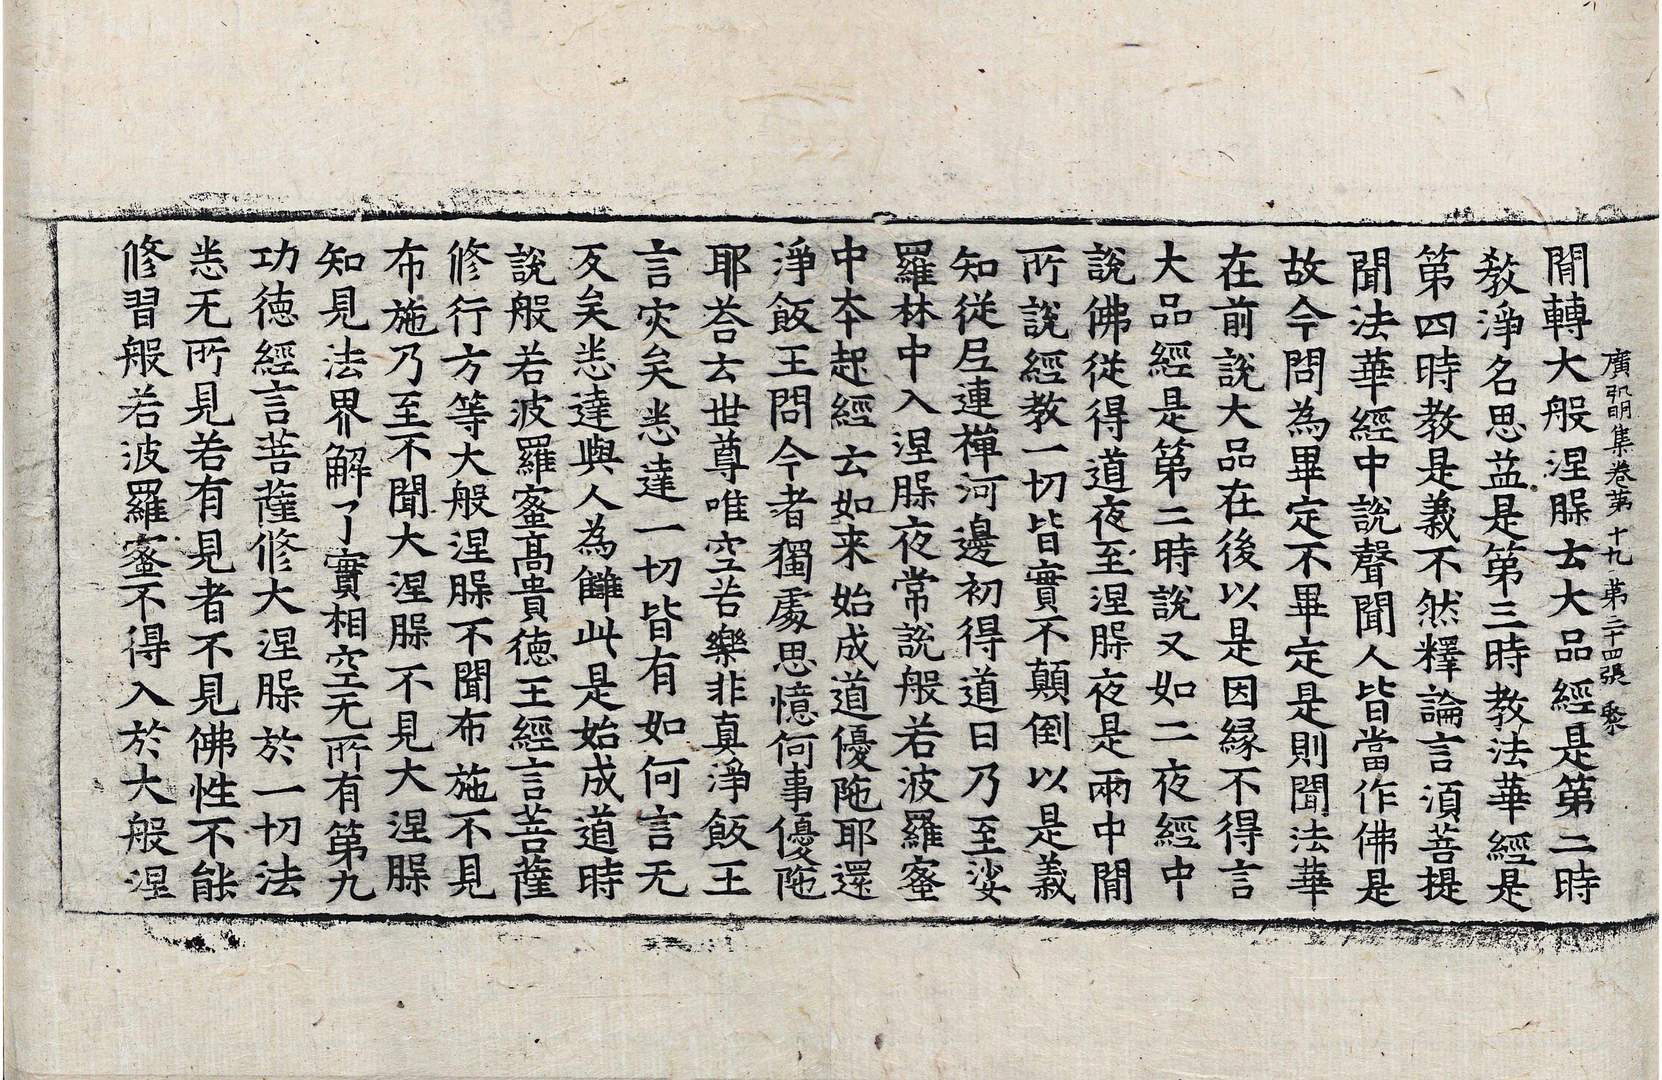 廣弘明集卷第十九 第二十四張 黎
閒轉大般涅槃去大品經是第二時
教淨名思益是第三時教法華經是
第四時教是義不然釋論言湏菩提
聞法華經中說聲聞人皆當作佛是
故今問為畢定不畢定是則聞法華
在前說大品在後以是因緣不得言
大品經是第二時說又如二夜經中
說佛從得道夜至涅槃夜是兩中閒
所說經教一切皆實不顛倒以是義
知從尼連禪河邊初得道日乃至娑
羅林中入涅槃夜常說般若波羅蜜
中本起經云如来始成道優陁耶還
淨飯王問今者獨處思憶何事優陁
耶荅云世尊唯空苦樂非真淨飯王
言灾矣悉達一切皆有如何言无
反矣悉達與人為讎此是始成道時
說般若波羅蜜高貴德王經言菩薩
修行方等大般涅槃不聞布施不見
布施乃至不聞大涅槃不見大涅槃
知見法界解了實相空无所有第九
功德經言菩薩修大涅槃於一切法
悉无所見若有見者不見佛性不能
修習般若波羅蜜不得入於大般涅